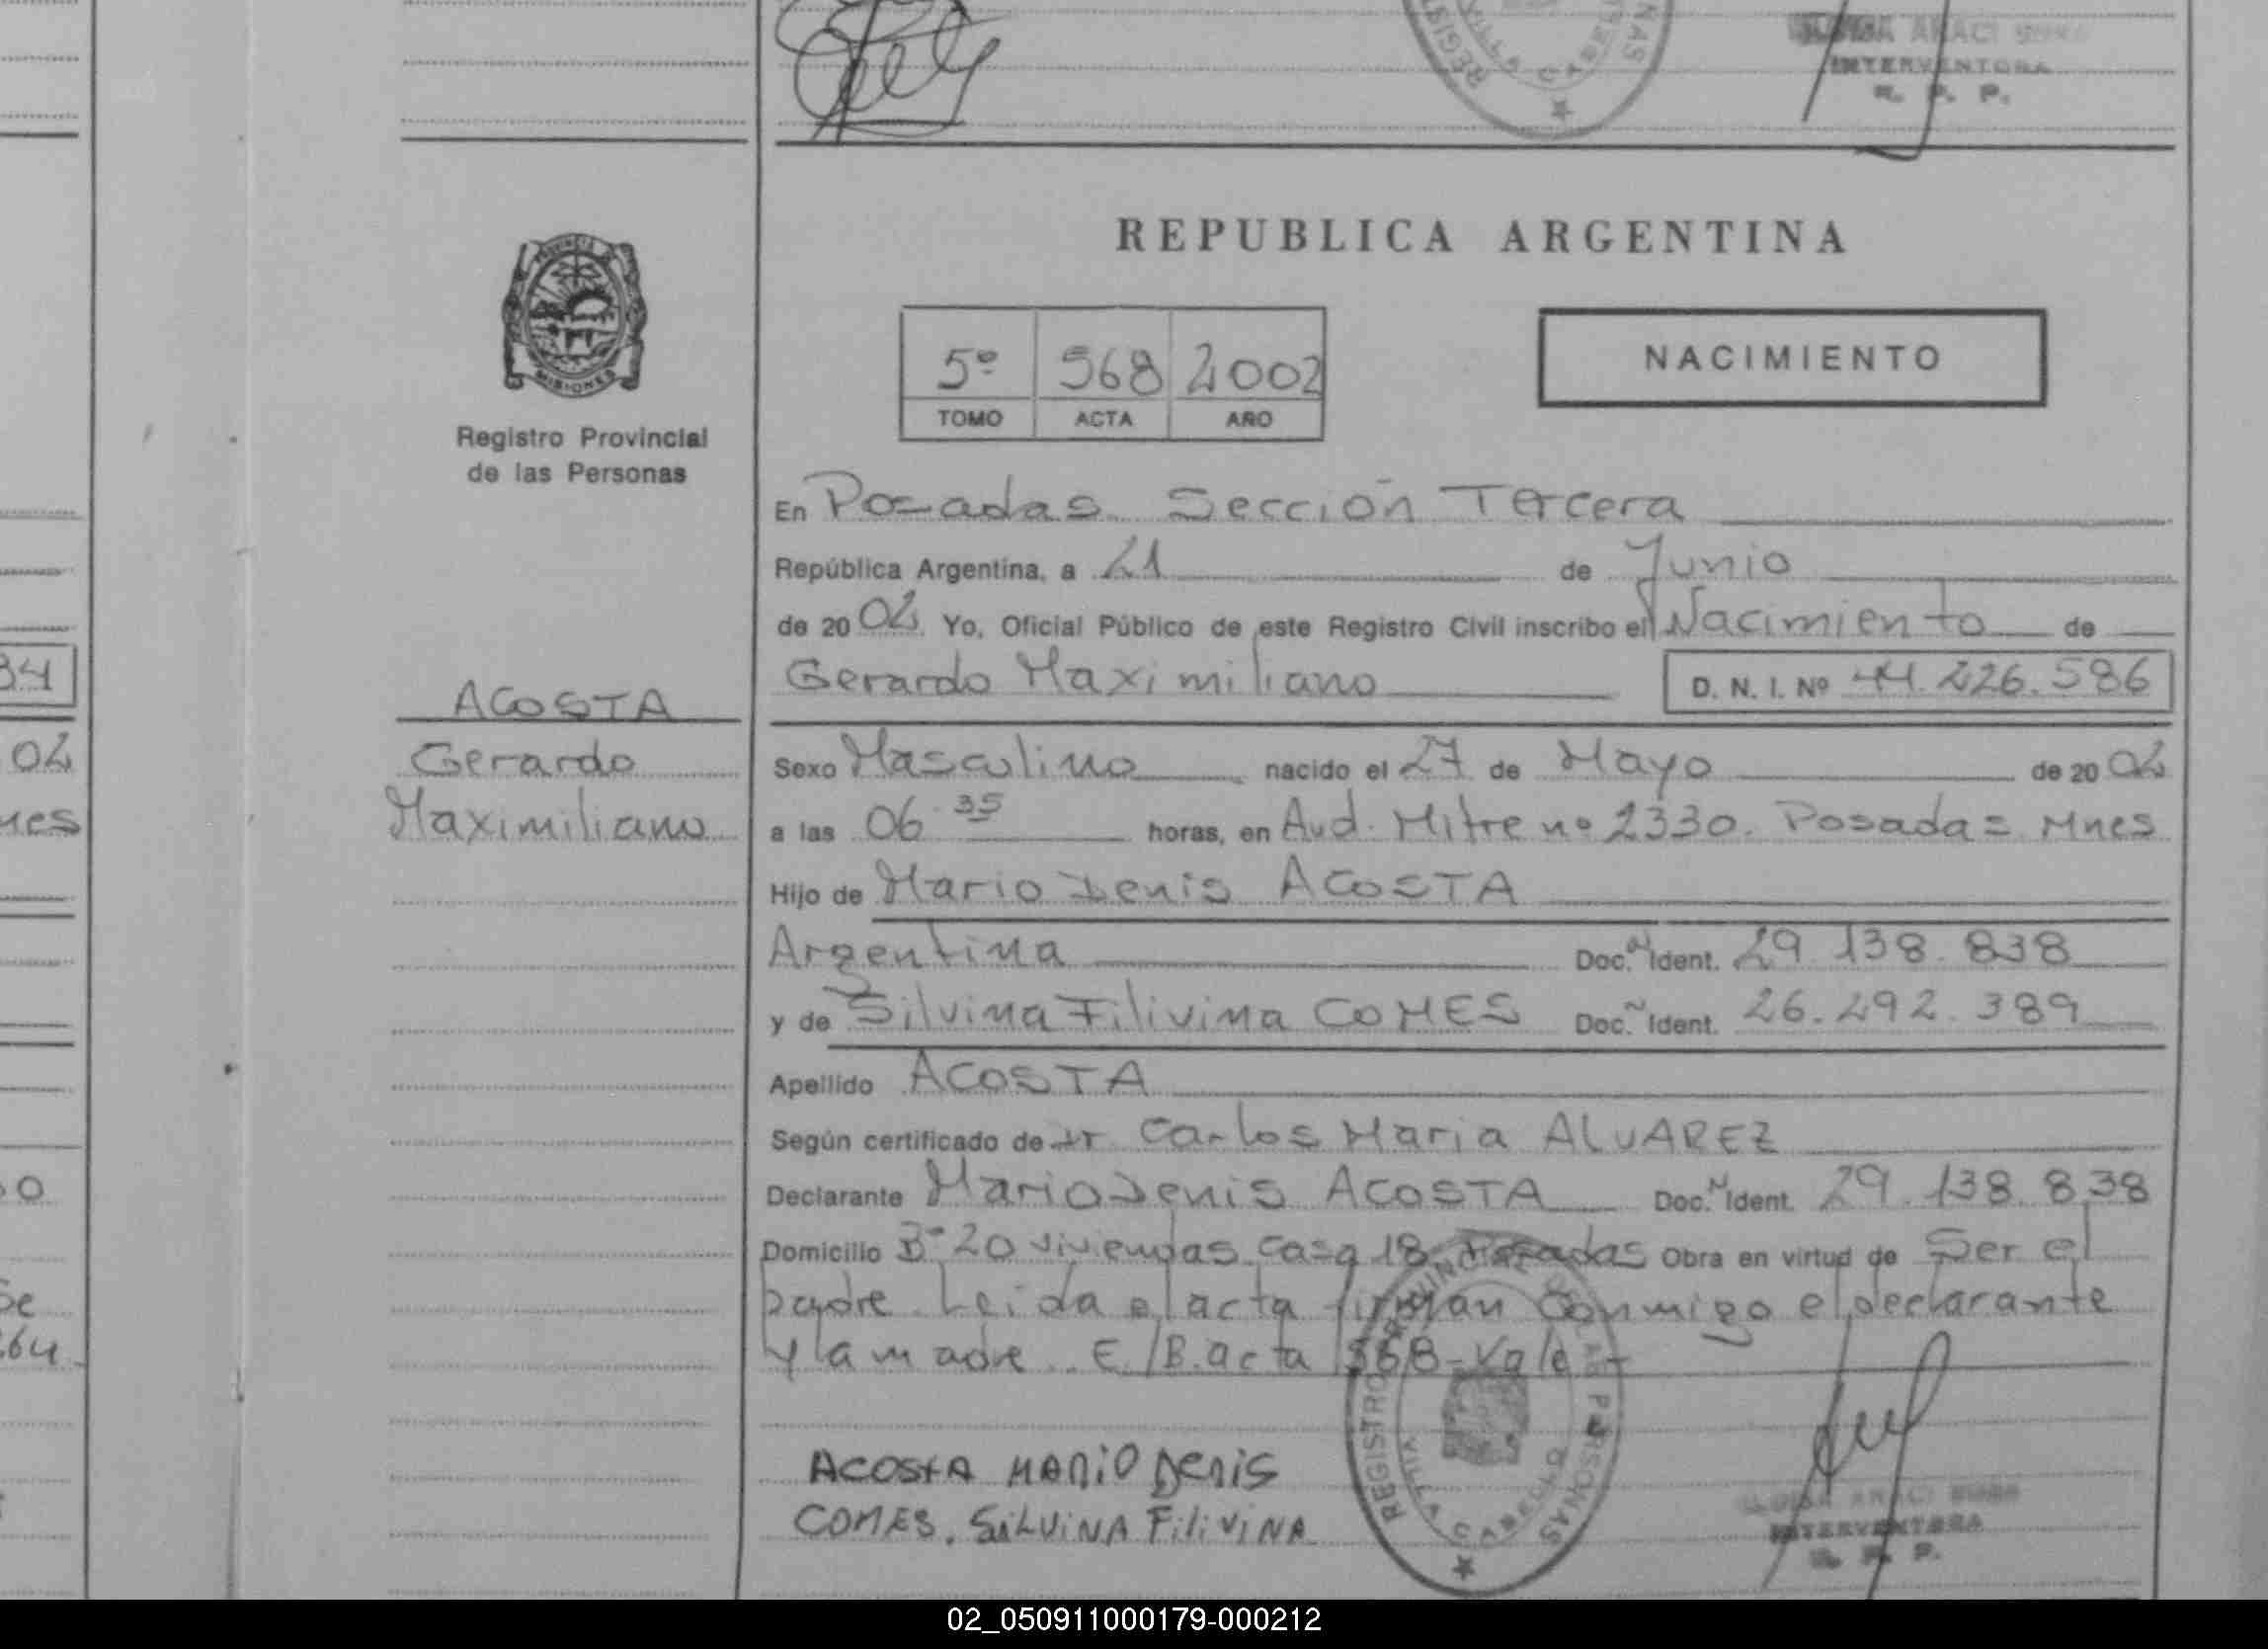 INTERVENTORA
R. P. P.
REPUBLICA ARGENTINA
PROVINCIA
MISIONES
Registro Provincial
de las Personas
5º 568 2002
TOMO ACTA AÑO
NACIMIENTO
En Posadas Sección Tercera
República Argentina, a 21 de Junio
de 20 02 Yo, Oficial Público de este Registro Civil inscribo el Nacimiento de
Gerardo Maximiliano D. N. I. Nº 44.226.586
ACOSTA
Gerardo
Maximiliano
Sexo Masculino nacido el 27 de Mayo de 20 02
a las 06 35 horas, en Avd. Mitre nº 2330. Posadas Mnes
Hijo de Mario Denis ACOSTA
Argentina Doc. N Ident. 29.138.838
y de Silvina Filivina COMES Doc. N Ident. 26.292.389
Apellido ACOSTA
Según certificado de Dr Carlos Maria ALVAREZ
Declarante Mario Denis ACOSTA Doc. N Ident. 29.138.838
Domicilio Bº 20 viviendas casa 18 Posadas Obra en virtud de Ser el
padre. Leida el acta firman conmigo el declarante
y la madre. E/B. acta 568-Vale-
ACOSTA MARIO DENIS
COMES. SILVINA FILIVINA
REGISTRO PROVINCIAL DE LAS PERSONAS
VILLA CABELLO
INTERVENTORA
R. P. P.
34
02
nes
50
se
264
02_050911000179-000212